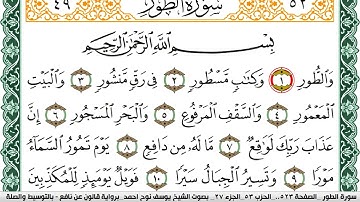 ٤٩ سُورَةُ الطُّورِ ٥٢
بِسْمِ اللَّهِ الرَّحْمَٰنِ الرَّحِيمِ
وَالطُّورِ ١ وَكِتَٰبٍ مَّسْطُورٍ ٢ فِى رَقٍّ مَّنشُورٍ ٣ وَالْبَيْتِ
الْمَعْمُورِ ٤ وَالسَّقْفِ الْمَرْفُوعِ ٥ وَالْبَحْرِ الْمَسْجُورِ ٦ إِنَّ
عَذَابَ رَبِّكَ لَوَٰقِعٌ ٧ مَّا لَهُۥ مِن دَافِعٍ ٨ يَوْمَ تَمُورُ السَّمَآءُ
مَوْرًا ٩ وَتَسِيرُ الْجِبَالُ سَيْرًا ١٠ فَوَيْلٌ يَوْمَئِذٍ لِّلْمُكَذِّبِينَ
سورة الطور . الصفحة ٥٢٣ .. الحزب ٥٣ الجزء ٢٧ . بصوت الشيخ يوسف نوح احمد برواية قالون عن نافع - بالتوسيط والصلة